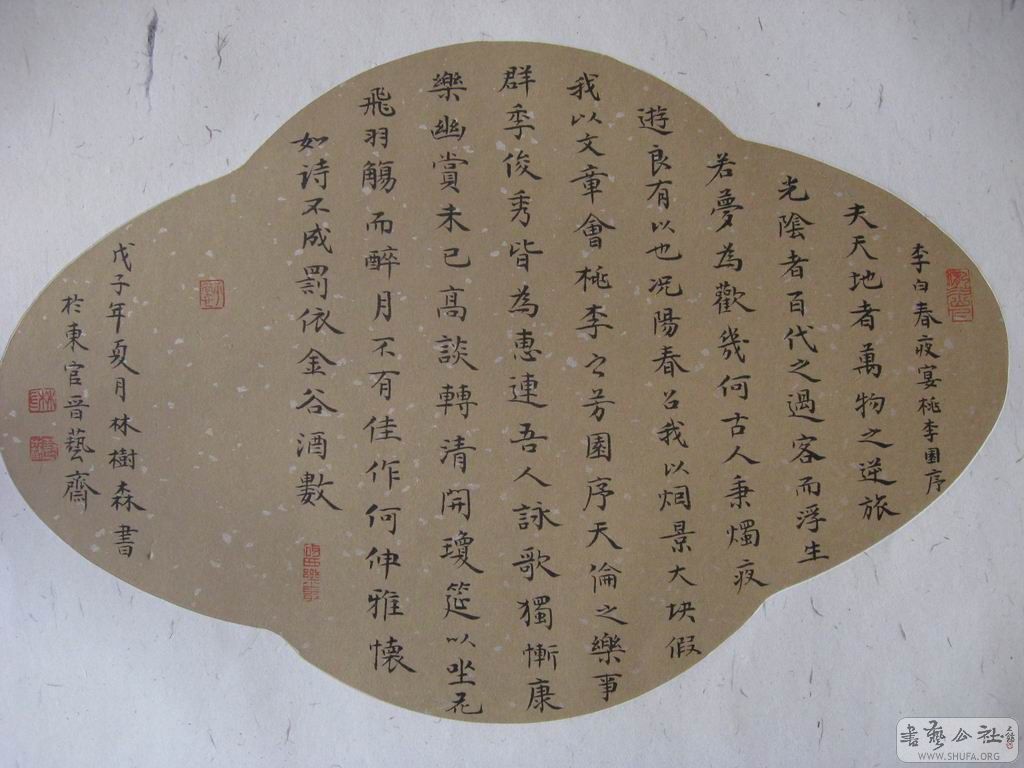 李白春夜宴桃李園序
夫天地者萬物之逆旅
光陰者百代之過客而浮生
若夢為歡幾何古人秉燭夜
遊良有以也况陽春召我以烟景大块假
我以文章會桃李之芳園序天倫之樂事
群季俊秀皆為惠連吾人詠歌獨慚康
樂幽賞未已高談轉清開瓊筵以坐花
飛羽觴而醉月不有佳作何伸雅懷
如詩不成罰依金谷酒數
戊子年夏月林樹森書
於東官晉藝齋
書藝公社
WWW.SHUFA.ORG